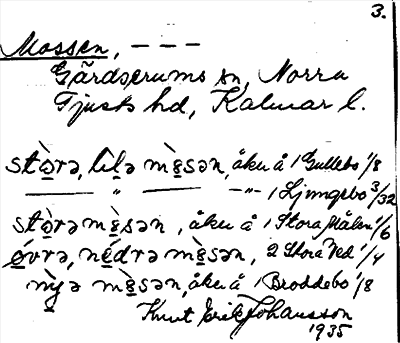 3.
Mossen, – – –
Gärdserums sn, Norra
Tjusts hd, Kalmar l.
stòrə, lìlə mòsən, åku å 1 Gullebo 1/8
—— " —— -"- 1 Ljungebo 3/32
stòrəmòsən, åku å 1 Stora Målen 1/6
óvrə, nédrə mòsən, 2 Stora Ved 1/4
nỳə mòsən, åku å 1 Broddebo 1/8
Knut Erik Johansson
1935